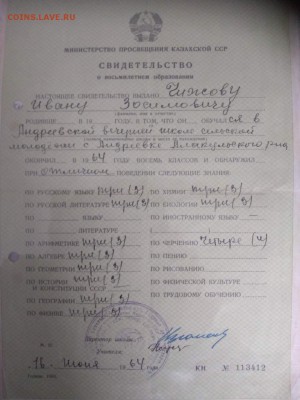 COINS.LAVE.RU
МИНИСТЕРСТВО ПРОСВЕЩЕНИЯ КАЗАХСКОЙ ССР
СВИДЕТЕЛЬСТВО
о восьмилетнем образовании
НАСТОЯЩЕЕ СВИДЕТЕЛЬСТВО ВЫДАНО Чижову
Ивану Зосимовичу
В ТОМ, ЧТО ОН ОБУЧАЛСЯ в
Андреевской вечерней школе сельской
молодежи с Андреевка
ОКОНЧИЛ В 1964 ГОДУ ВОСЕМЬ КЛАССОВ И ОБНАРУЖИЛ
ПРИ отличном ПОВЕДЕНИИ СЛЕДУЮЩИЕ ЗНАНИЯ:
ПО РУССКОМУ ЯЗЫКУ три (3) ПО ХИМИИ три (3)
ПО РУССКОЙ ЛИТЕРАТУРЕ три (3) ПО БИОЛОГИИ три (3)
ПО ЯЗЫКУ ПО ИНОСТРАННОМУ ЯЗЫКУ —
ПО ЛИТЕРАТУРЕ ( )
ПО АРИФМЕТИКЕ три (3) ПО ЧЕРЧЕНИЮ четыре (4)
ПО АЛГЕБРЕ три (3) ПО ПЕНИЮ
ПО ГЕОМЕТРИИ три (3) ПО РИСОВАНИЮ
ПО ИСТОРИИ три (3) ПО ФИЗИЧЕСКОЙ КУЛЬТУРЕ
И КОНСТИТУЦИИ СССР ПО ТРУДОВОМУ ОБУЧЕНИЮ
ПО ГЕОГРАФИИ три (3)
ПО ФИЗИКЕ три (3)
Директор школы
Учителя:
16 июня 1964 г. КН № 113412